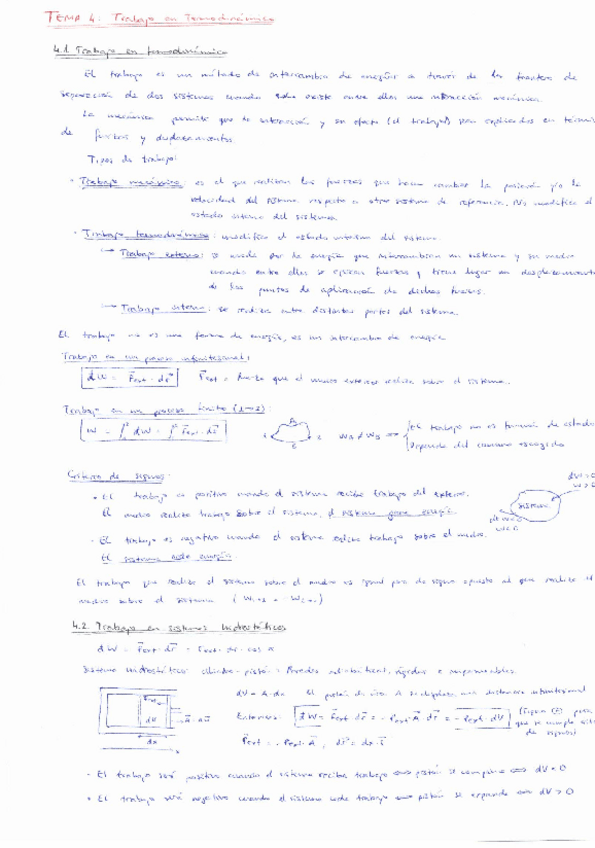 TEMA 4: Trabajo en Termodinámica
4.1 Trabajo en termodinámica
El trabajo es un método de intercambio de energía a través de la frontera de
separación de dos sistemas cuando existe entre ellos una interacción mecánica.
La mecánica permite que la interacción y su efecto (el trabajo) sean explicados en térmi
de fuerzas y desplazamientos.
Tipos de trabajo:
• Trabajo mecánico: es el que realizan las fuerzas que hacen cambiar la posición y/o la
velocidad del sistema respecto a otro sistema de referencia. No modifica el
estado interno del sistema.
• Trabajo termodinámico: modifica el estado interno del sistema.
↳ Trabajo externo: es la energía que intercambian un sistema y su medio
cuando entre ellos se ejercen fuerzas y tiene lugar un desplazamiento
de los puntos de aplicación de dichas fuerzas.
↳ Trabajo interno: se realiza entre distintas partes del sistema.
El trabajo no es una forma de energía, es un intercambio de energía
Trabajo en un proceso infinitesimal:
dW = F⃗ext · dr⃗ F⃗ext = fuerza que el medio exterior realiza sobre el sistema.
Trabajo en un proceso finito (1→2):
W = ∫₁² dW = ∫₁² F⃗ext · dr⃗ 1 A 2 B WA ≠ WB ⇒ El trabajo no es función de estado
Depende del camino escogido
Criterio de signos:
• El trabajo es positivo cuando el sistema recibe trabajo del exterior.
El medio realiza trabajo sobre el sistema, el sistema gana energía.
sistema
• El trabajo es negativo cuando el sistema realiza trabajo sobre el medio.
El sistema cede energía.
El trabajo que realiza el sistema sobre el medio es igual pero de signo opuesto al que realiza el
medio sobre el sistema
4.2. Trabajo en sistemas hidrostáticos
dW = F⃗ext · dr⃗ = Fext · dr · cos α
Sistema hidrostático: cilindro-pistón: Paredes adiabáticas, rígidas e impermeables.
dV = A · dx El pistón de área A se desplaza una distancia infinitesimal
Entonces: dW = F⃗ext · dr⃗ = - Pext · A⃗ · dr⃗ = - Pext · dV
F⃗ext = - Pext · A⃗ ;
• El trabajo será positivo cuando el sistema recibe trabajo ⟺ pistón se comprime ⟺ dV < 0
• El trabajo será negativo cuando el sistema cede trabajo ⟺ pistón se expande ⟺ dV > 0